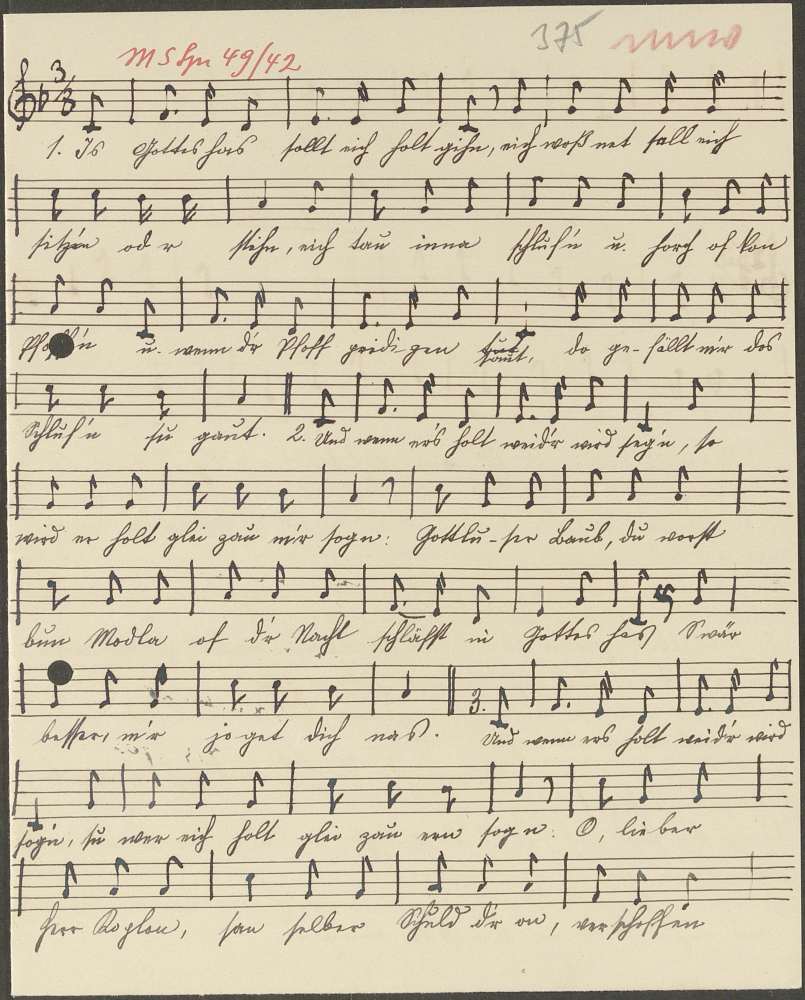 375
M S Spr 49/42
3/8
1. Is Gotteshas sollt eich holt gihn, eich woß net sall eich
sitzen od r stihn, eich tau inna schluf'n u. horch of kan
u. wenn dr Pfoff predigen tut, do ge-fällt mir dos
Schluf'n su gaut. 2. Und wenn ers holt weidr wird seg'n, so
wird er holt glei zau mir sogn: Gottlu-ser Baub, du worst
bun Modla of dr Nacht schläfst in Gotteshas S wär
besser, m'r joget dich nas. 3. Und wenn ers holt weidr wird
sog'n, su wer eich holt glei zau ern sogn: O, lieber
Herr Koplon, san selber Schuld dr on, verschoffen